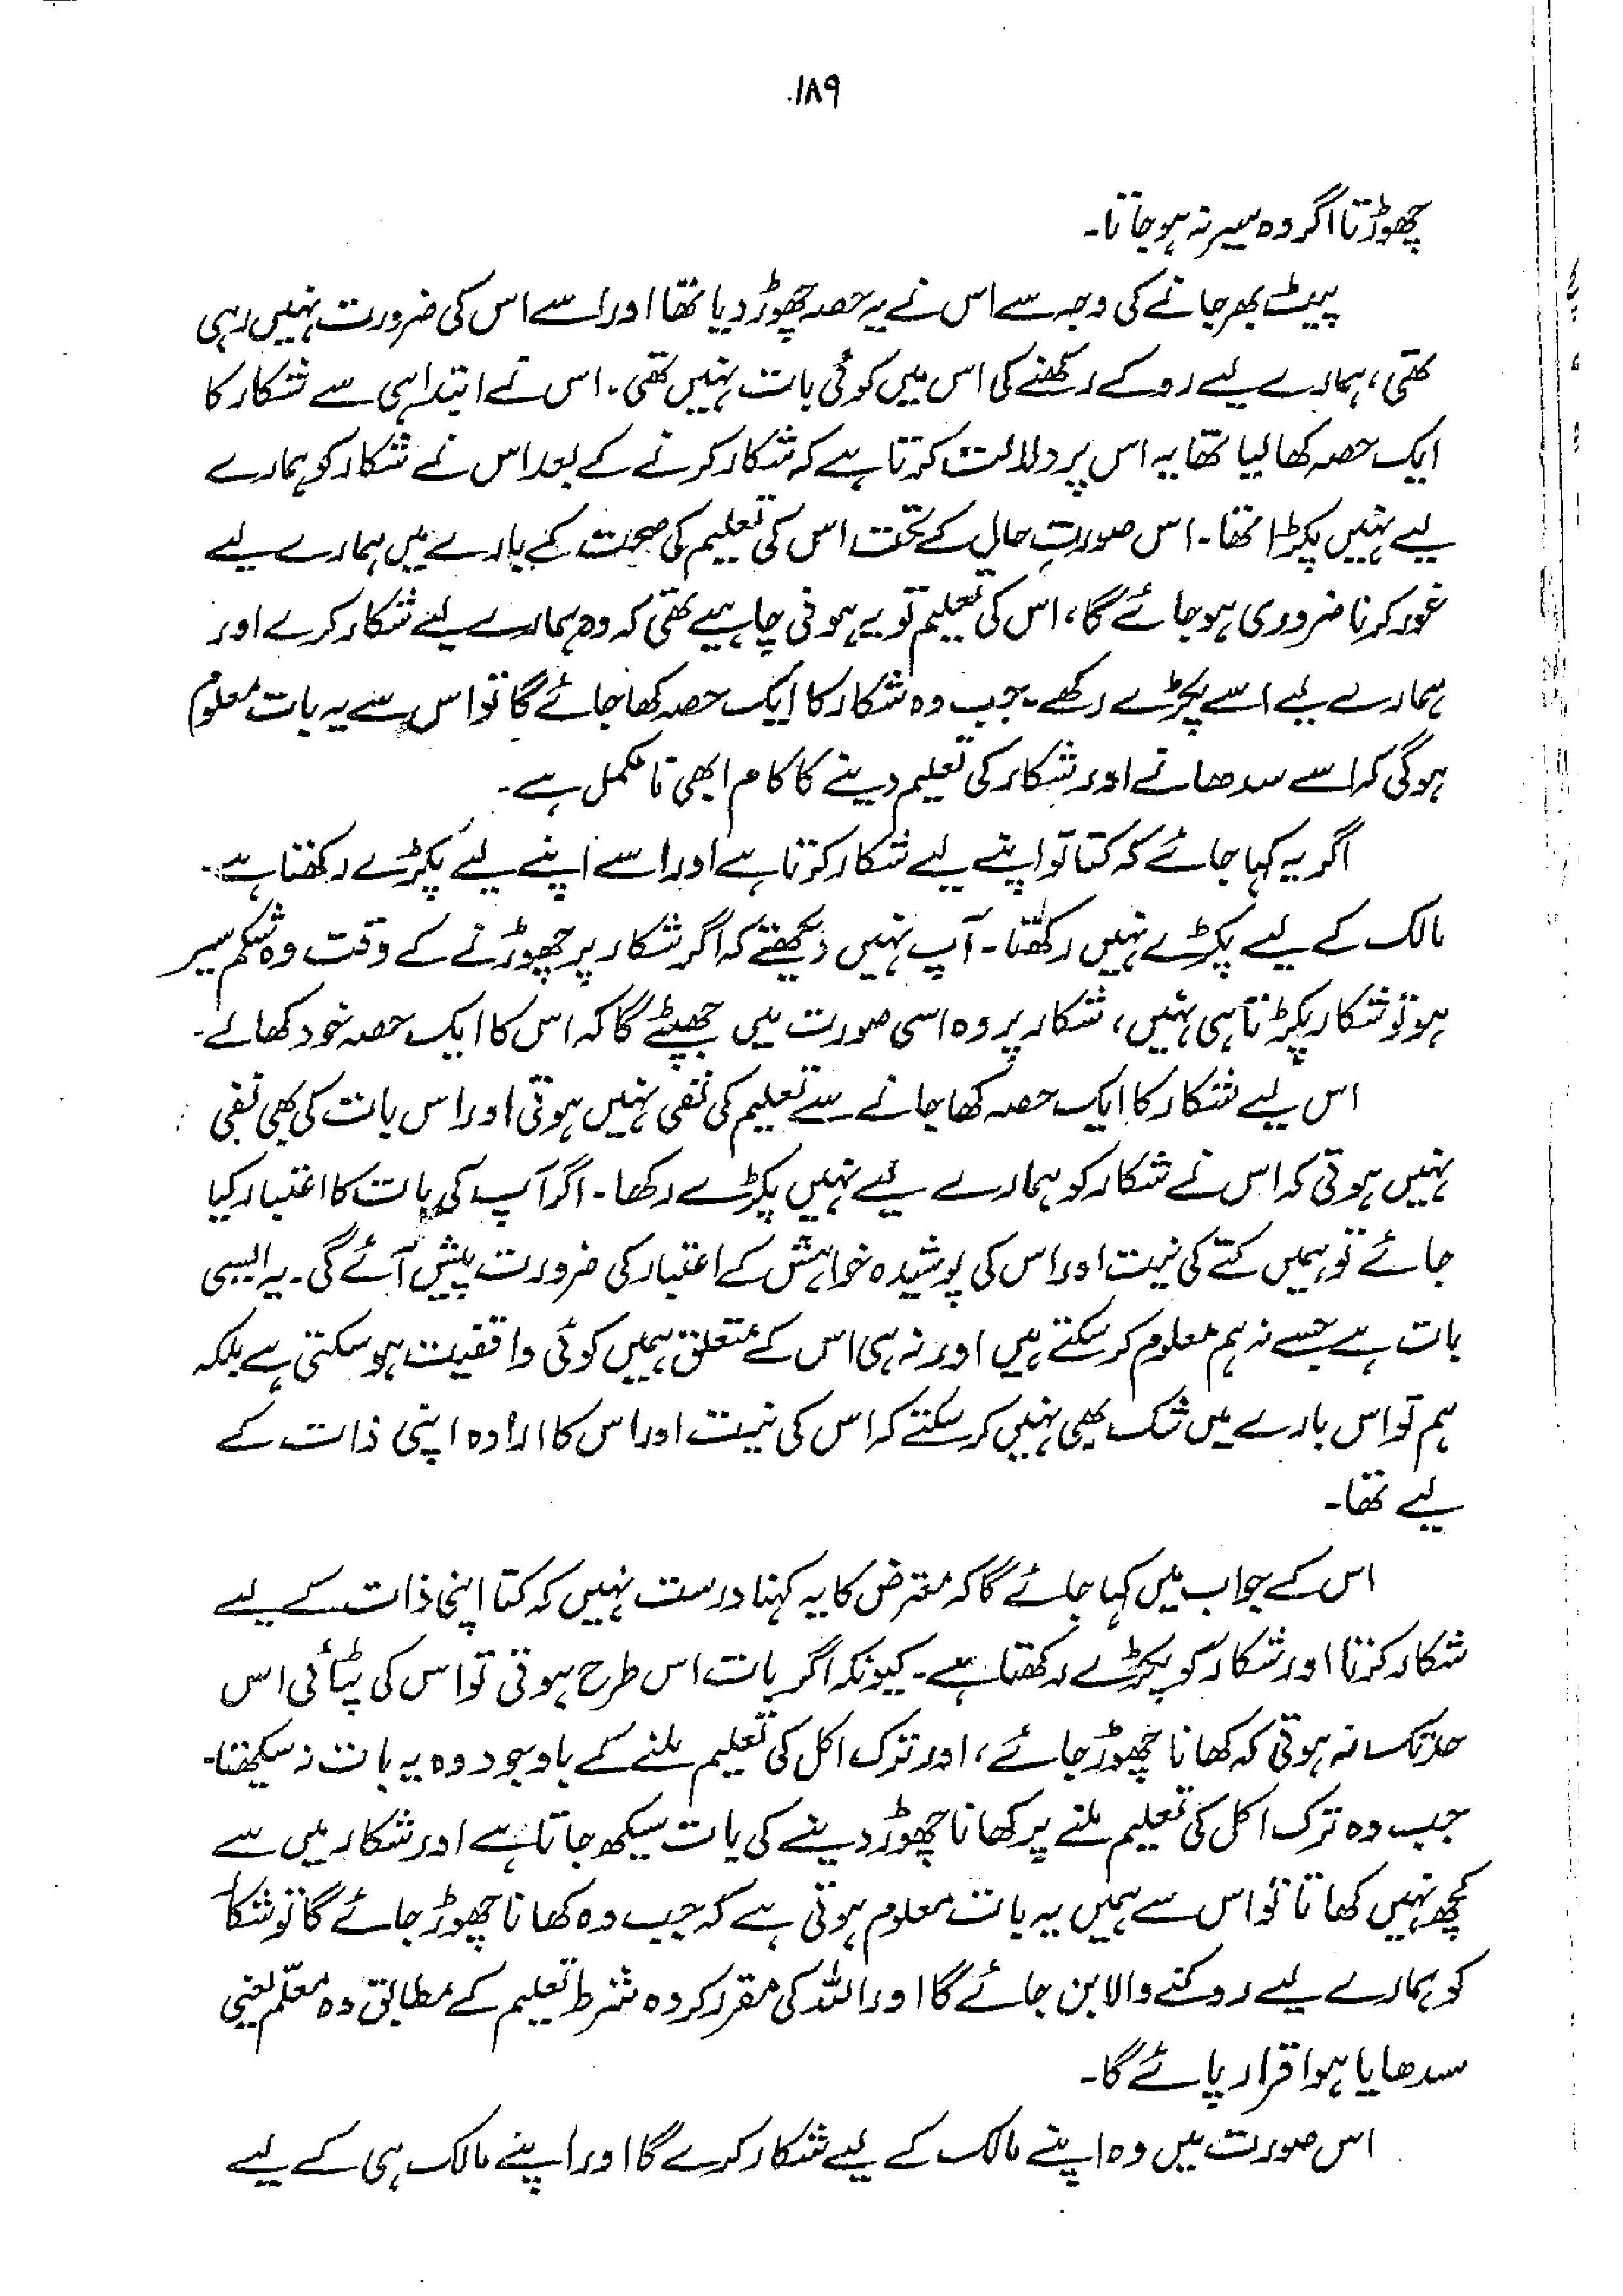 ۱۸۹
چھوڑتا اگر وہ سیر نہ ہو جاتا۔
پیٹ بھر جانے کی وجہ سے اس نے یہ حصہ چھوڑ دیا تھا اور اسے اس کی ضرورت نہیں رہی
تھی، ہمارے لیے روکے رکھنے کی اس میں کوئی بات نہیں تھی۔ اس نے ابتدا ہی سے شکار کا
ایک حصہ کھا لیا تھا یہ اس پر دلالت کرتا ہے کہ شکار کرنے کے بعد اس نے شکار کو ہمارے
لیے نہیں پکڑا تھا۔ اس صورتِ حال کے تحت اس کی تعلیم کی صحت کے بارے میں ہمارے لیے
غور کرنا ضروری ہو جائے گا، اس کی تعلیم تو یہ ہونی چاہیے تھی کہ وہ ہمارے لیے شکار کرے اور
ہمارے لیے اسے پکڑے رکھے۔ جب وہ شکار کا ایک حصہ کھا جائے گا تو اس سے یہ بات معلوم
ہوگی کہ اسے سدھانے اور شکار کی تعلیم دینے کا کام ابھی نامکمل ہے۔
اگر یہ کہا جائے کہ کتا تو اپنے لیے شکار کرتا ہے اور اسے اپنے لیے پکڑے رکھتا ہے۔
مالک کے لیے پکڑے نہیں رکھتا۔ آپ نہیں دیکھتے کہ اگر شکار پر چھوڑنے کے وقت وہ شکم سیر
ہو تو شکار پکڑتا ہی نہیں، شکار پر وہ اسی صورت میں جھپٹے گا کہ اس کا ایک حصہ خود کھالے۔
اس لیے شکار کا ایک حصہ کھا جانے سے تعلیم کی نفی نہیں ہوتی اور اس بات کی بھی نفی
نہیں ہوتی کہ اس نے شکار کو ہمارے لیے نہیں پکڑے رکھا۔ اگر آپ کی بات کا اعتبار کیا
جائے تو ہمیں کتے کی نیت اور اس کی پوشیدہ خواہش کے اعتبار کی ضرورت پیش آئے گی۔ یہ ایسی
بات ہے جسے نہ ہم معلوم کر سکتے ہیں اور نہ ہی اس کے متعلق ہمیں کوئی واقفیت ہو سکتی ہے بلکہ
ہم تو اس بارے میں شک بھی نہیں کر سکتے کہ اس کی نیت اور اس کا ارادہ اپنی ذات کے
لیے تھا۔
اس کے جواب میں کہا جائے گا کہ معترض کا یہ کہنا درست نہیں کہ کتا اپنی ذات کے لیے
شکار کرتا اور شکار کو پکڑے رکھتا ہے۔ کیونکہ اگر بات اس طرح ہوتی تو اس کی پٹائی اس
حد تک نہ ہوتی کہ کھانا چھوڑ جائے، اور ترک اکل کی تعلیم ملنے کے باوجود وہ یہ بات نہ سیکھتا۔
جب وہ ترک اکل کی تعلیم ملنے پر کھانا چھوڑ دینے کی بات سیکھ جاتا ہے اور شکار میں سے
کچھ نہیں کھاتا تو اس سے ہمیں یہ بات معلوم ہوتی ہے کہ جب وہ کھانا چھوڑ جائے گا تو شکار
کو ہمارے لیے روکنے والا بن جائے گا اور اللہ کی مقرر کردہ شرط تعلیم کے مطابق وہ معلّم یعنی
سدھایا ہوا قرار پائے گا۔
اس صورت میں وہ اپنے مالک کے لیے شکار کرے گا اور اپنے مالک ہی کے لیے